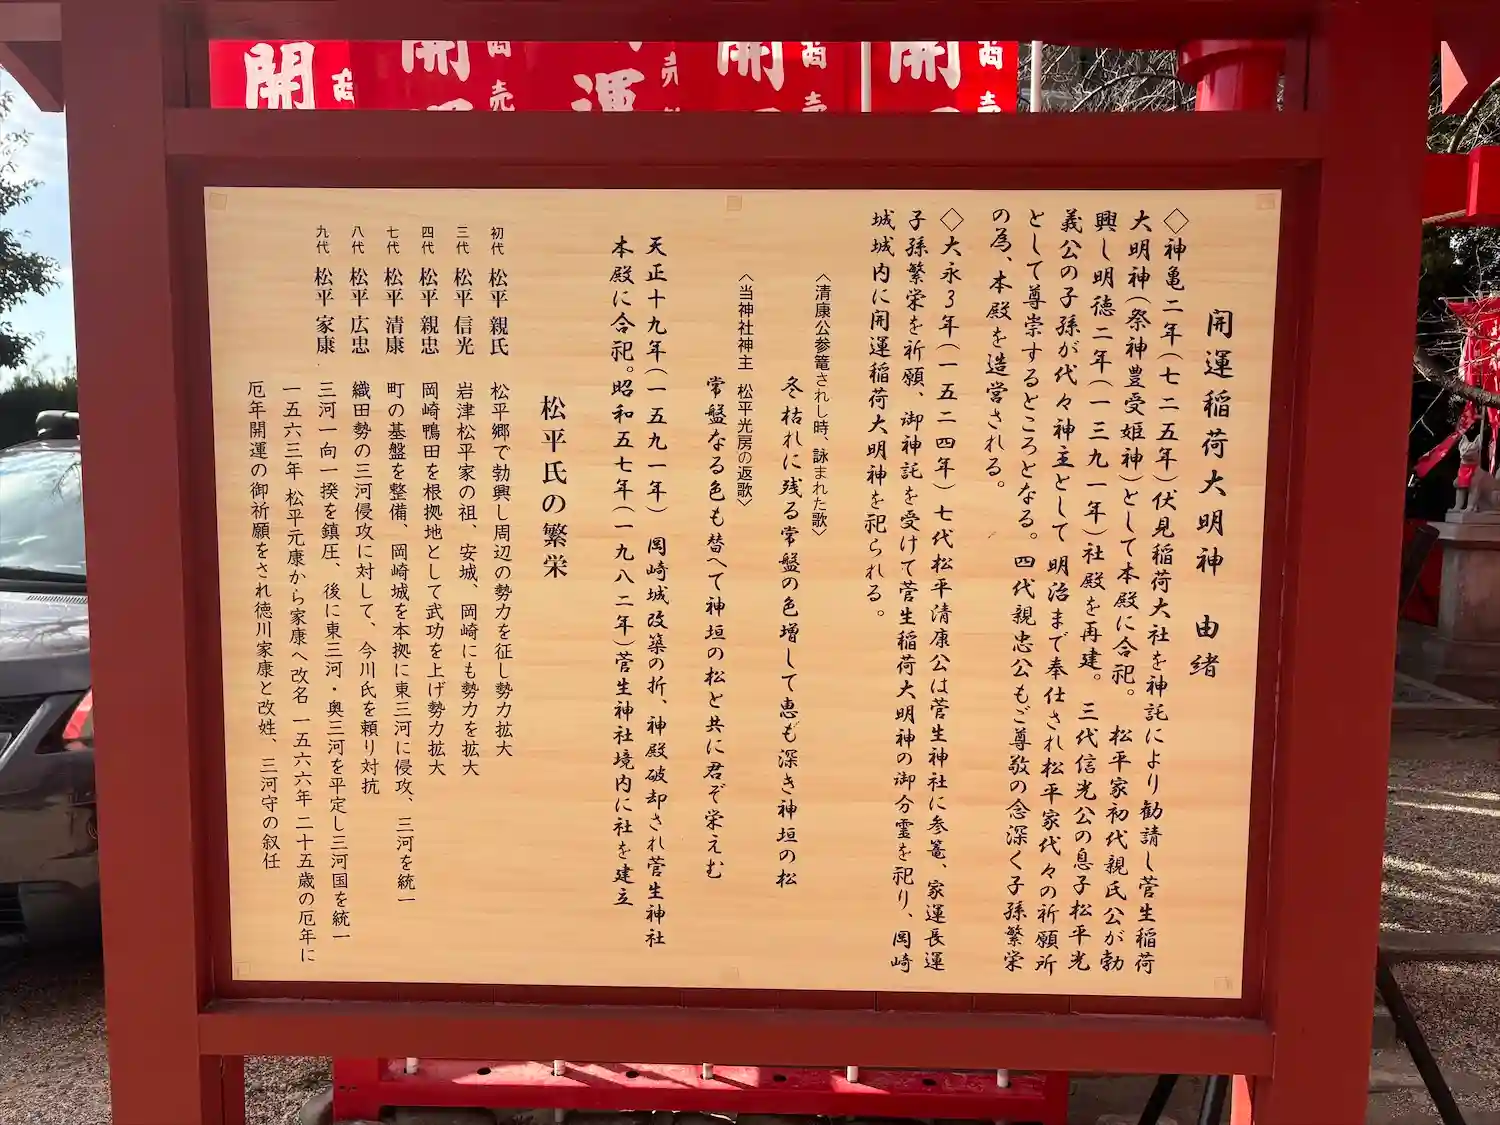 開運稲荷大明神 由緒
◇神亀二年(七二五年)伏見稲荷大社を神託により勧請し菅生稲荷
大明神(祭神豊受姫神)として本殿に合祀。 松平家初代親氏公が勃
興し明徳二年(一三九一年)社殿を再建。 三代信光公の息子松平光
義公の子孫が代々神主として 明治まで奉仕され松平家代々の祈願所
として尊崇するところとなる。四代親忠公もご尊敬の念深く子孫繁栄
の為、本殿を造営される。
◇大永3年(一五二四年)七代松平清康公は菅生神社に参篭、家運長運
子孫繁栄を祈願、御神託を受けて菅生稲荷大明神の御分霊を祀り、岡崎
城城内に開運稲荷大明神を祀られる。
〈清康公参篭されし時、詠まれた歌〉
冬枯れに残る常盤の色増して恵も深き神垣の松
〈当神社神主 松平光房の返歌〉
常盤なる色も替へて神垣の松と共に君ぞ栄えむ
天正十九年(一五九一年) 岡崎城改築の折、神殿破却され菅生神社
本殿に合祀。昭和五七年(一九八二年)菅生神社境内に社を建立
松平氏の繁栄
初代 松平 親氏 松平郷で勃興し周辺の勢力を征し勢力拡大
三代 松平 信光 岩津松平家の祖、安城、岡崎にも勢力を拡大
四代 松平 親忠 岡崎鴨田を根拠地として武功を上げ勢力拡大
七代 松平 清康 町の基盤を整備、岡崎城を本拠に東三河に侵攻、三河を統一
八代 松平 広忠 織田勢の三河侵攻に対して、今川氏を頼り対抗
九代 松平 家康 三河一向一揆を鎮圧、後に東三河・奥三河を平定し三河国を統一
一五六三年 松平元康から家康へ改名 一五六六年 二十五歳の厄年に
厄年開運の御祈願をされ徳川家康と改姓、三河守の叙任
開
商
開
商
売
運
売
開
商
売
開
商
売